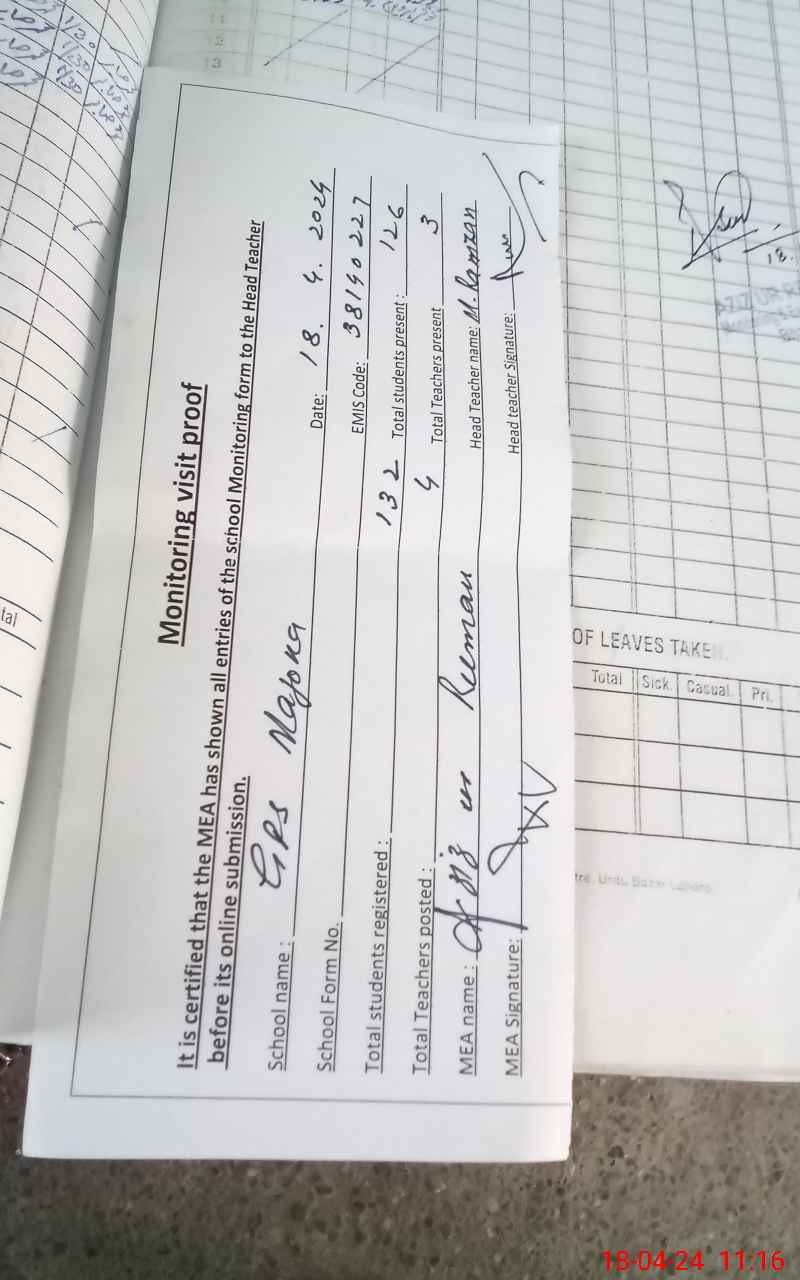 Monitoring visit proof
It is certified that the MEA has shown all entries of the school Monitoring form to the Head Teacher
before its online submission.
School name : GPS Majoka Date: 18. 4. 2024
School Form No. EMIS Code: 38140227
Total students registered : 132 Total students present : 126
Total Teachers posted : 4 Total Teachers present 3
MEA name : Aziz ur Rehman Head Teacher name: M. Ramzan
MEA Signature: Head teacher Signature:
11
12
13
tal
OF LEAVES TAKEN.
Total Sick. Casual. Pri.
18.
18-04-24 11:16